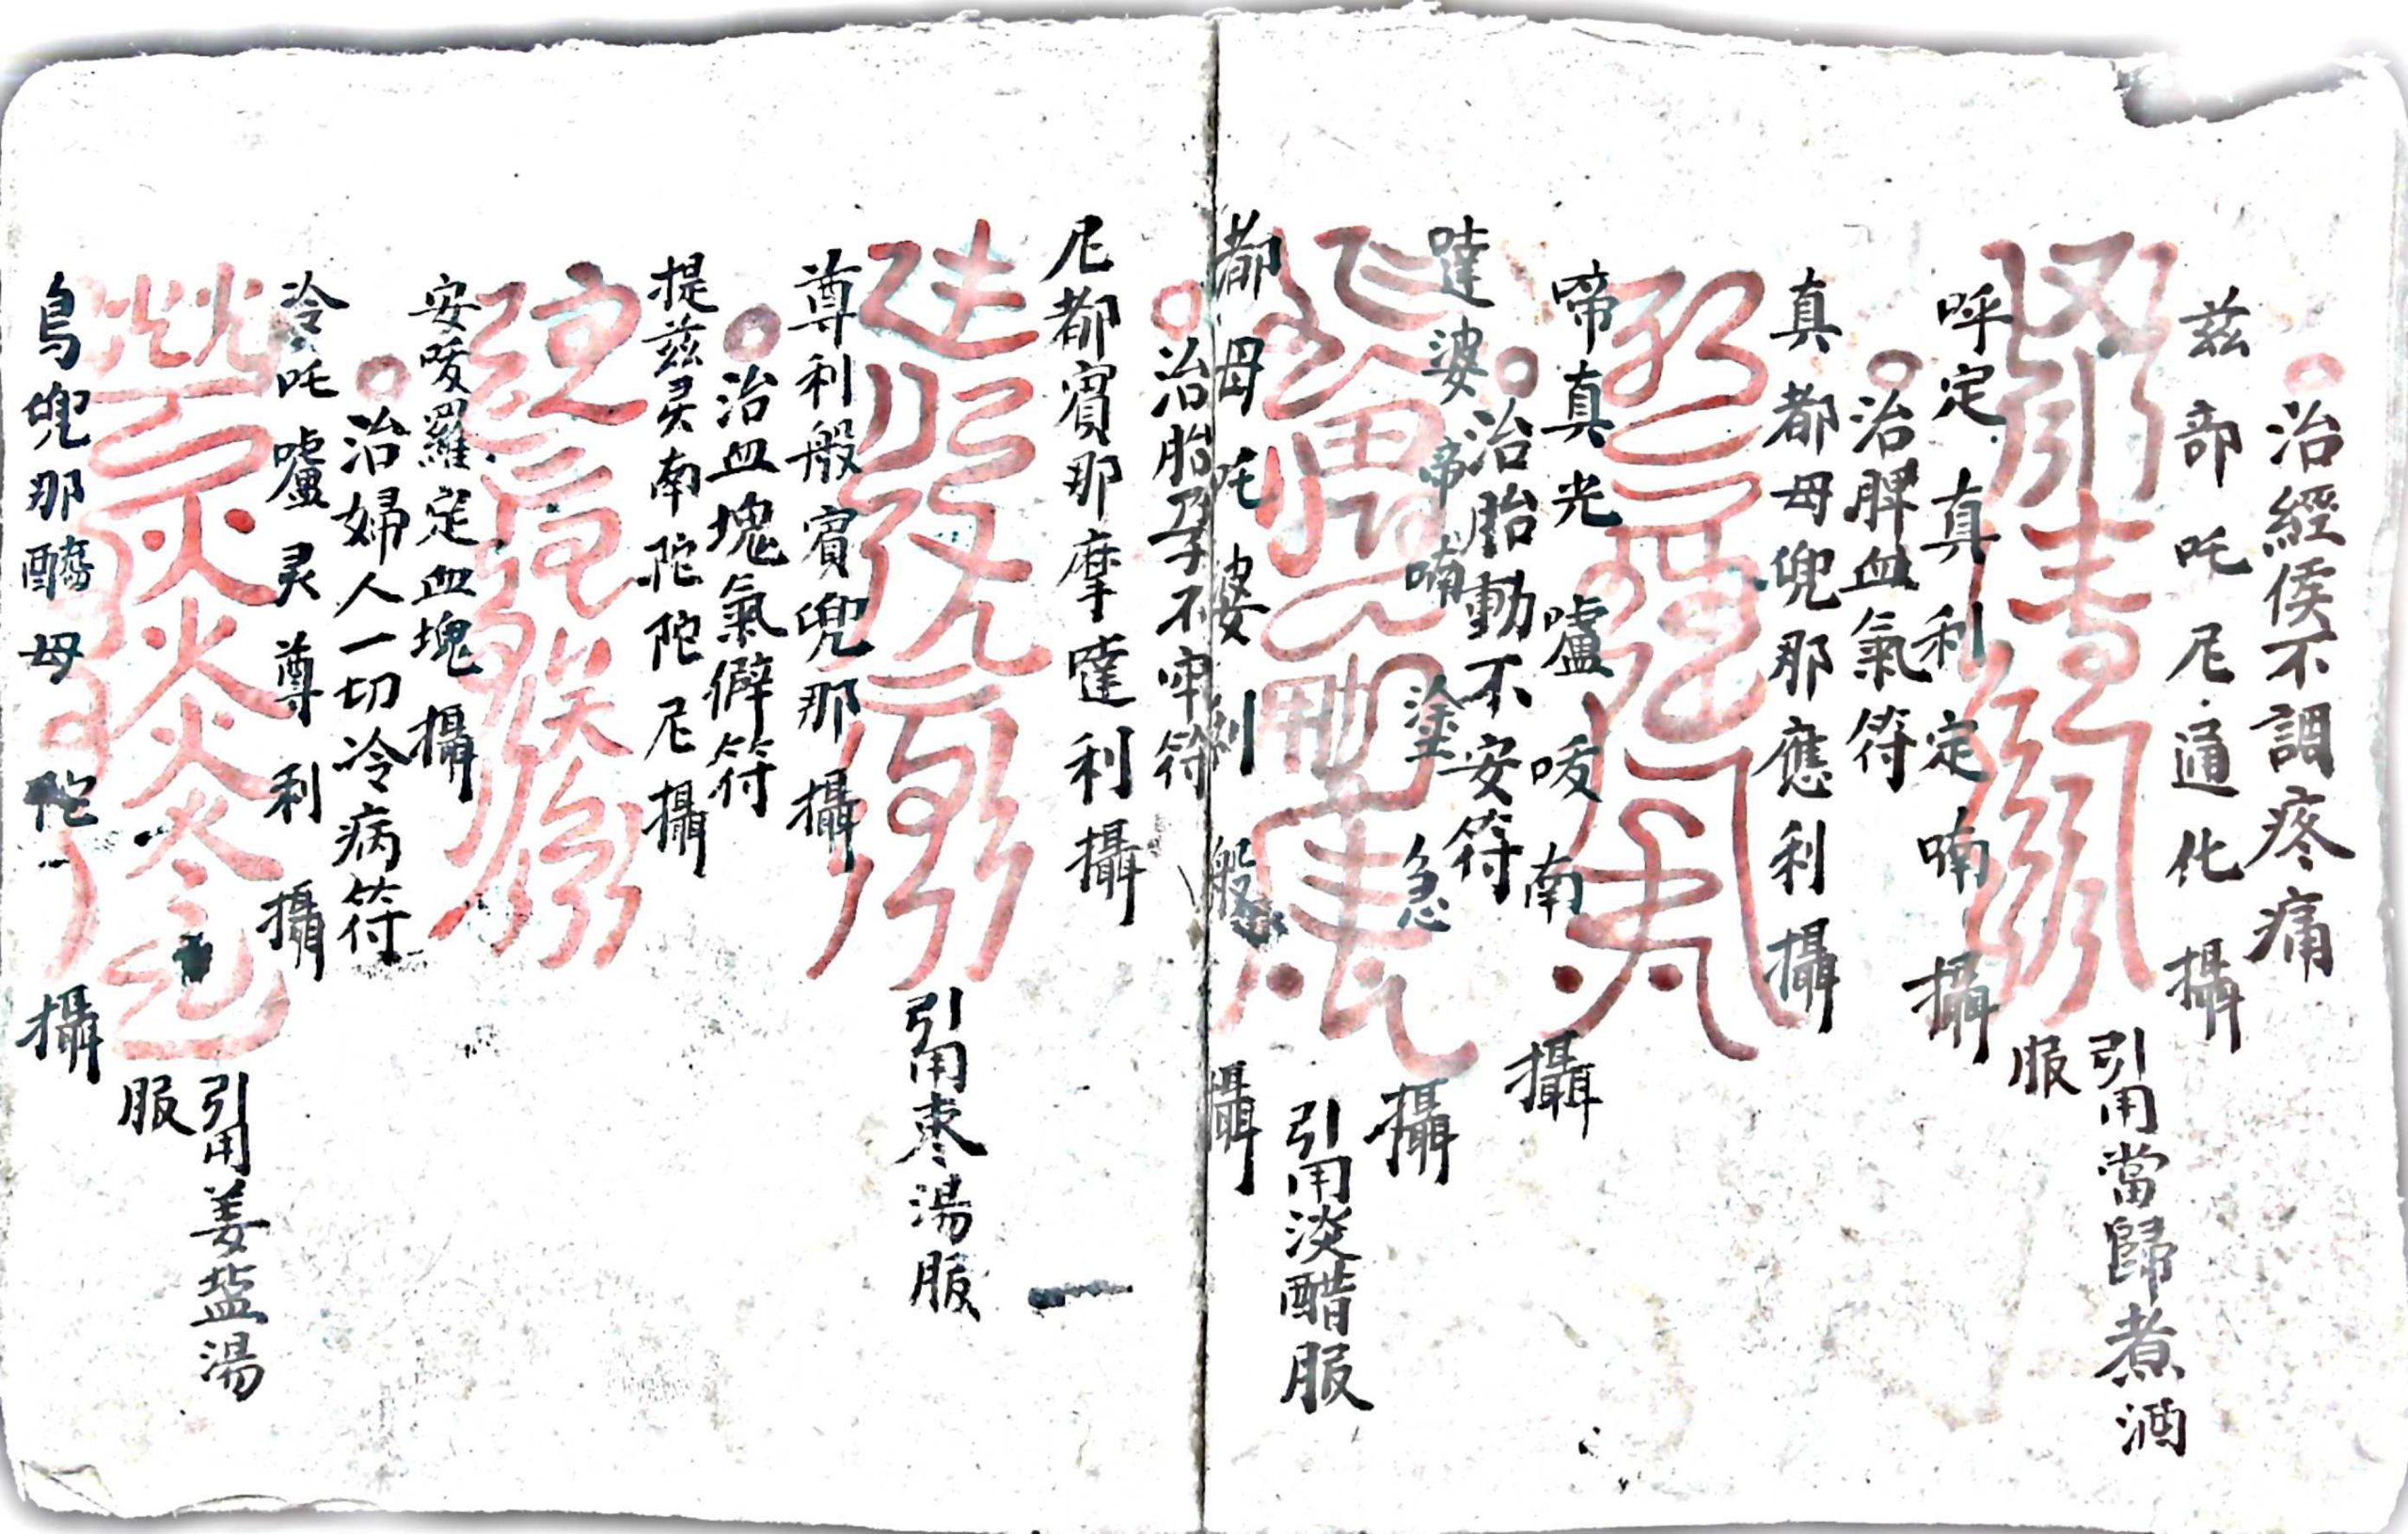 治經侯不調疼痛
茲部吒尼通化攝
引用當歸煮酒
服
呼定真利定喃攝
治脾血氣符
真都母兜那應利攝
啼真光嚧唼南攝
治胎動不安符
噠婆啼喃塗急攝
引用淡醋服
都母吒婆利般攝
治胎孕不牢符
尼都賓那摩噠利攝
引用枣湯服
尊利般賓兜那攝
治血塊氣癖符
提茲灵南陀陀尼攝
安唼羅定血塊攝
治婦人一切冷病符
冷吒嚧灵尊利攝
引用姜盐湯
服
烏兜那母陀攝